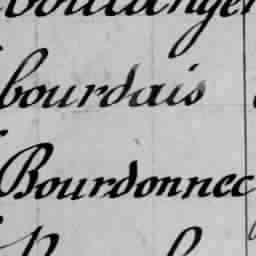 boulanger
bourdais
Bourdonnec